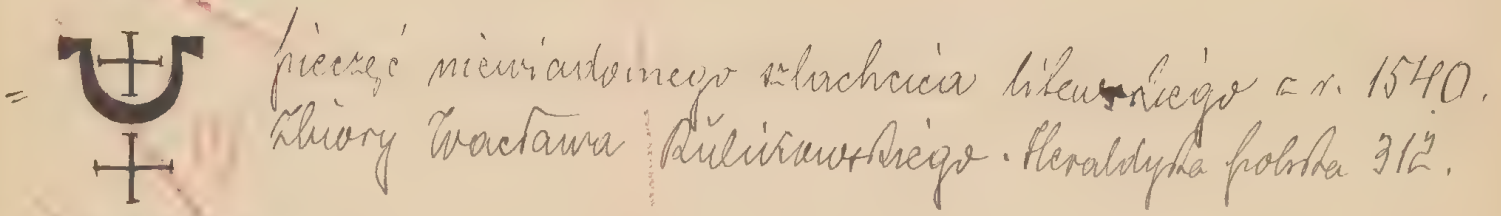 = pieczęć niewiadomego szlachcica litewskiego z r. 1540.
Zbiory Wacława Rulikowskiego. Heraldyka polska 312.